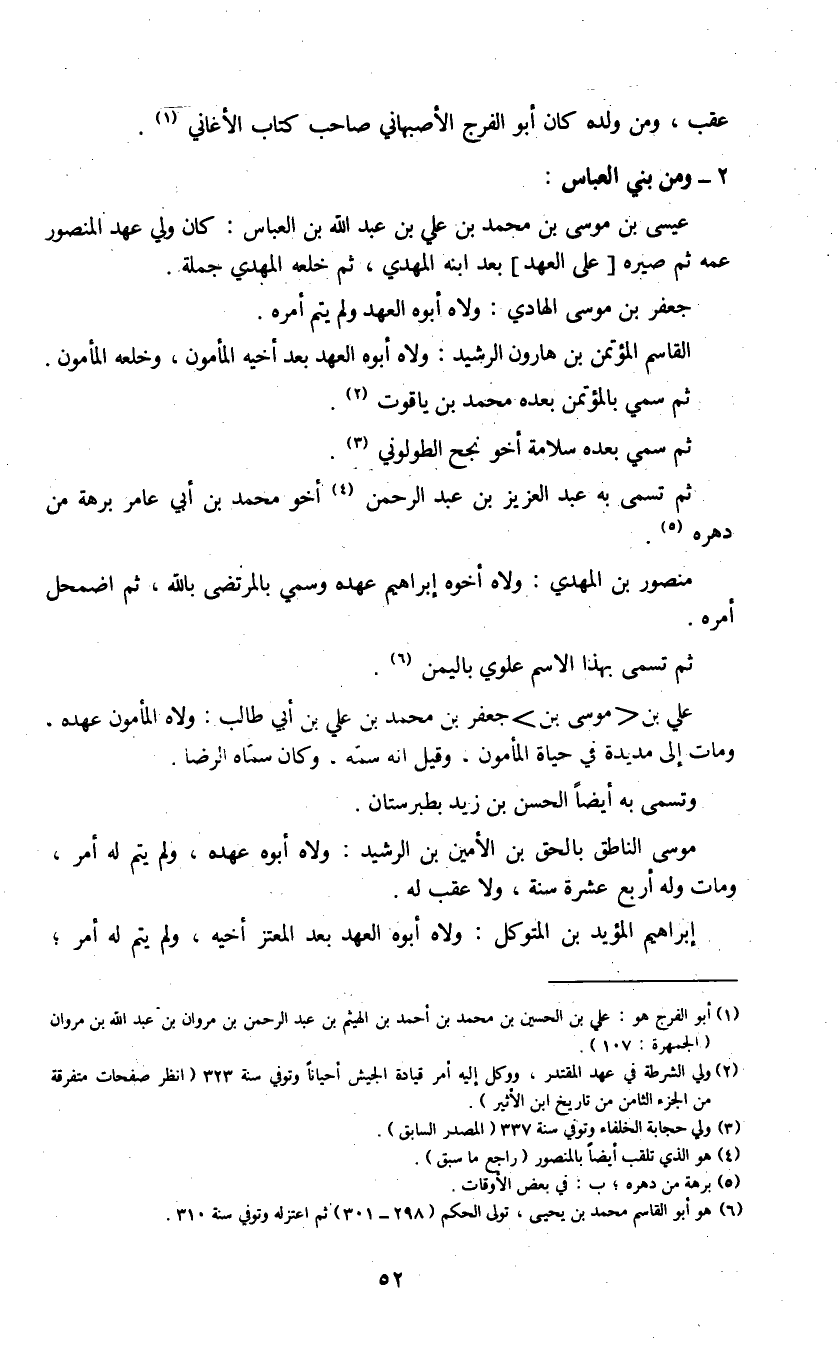 عقب ، ومن ولده كان أبو الفرج الأصبهاني صاحب كتاب الأغاني (١) .
٢ ـ ومن بني العباس :
عيسى بن موسى بن محمد بن علي بن عبد الله بن العباس : كان ولي عهد المنصور
عمه ثم صيره [ على العهد ] بعد ابنه المهدي ، ثم خلعه المهدي جملة .
جعفر بن موسى الهادي : ولاه أبوه العهد ولم يتم أمره .
القاسم المؤتمن بن هارون الرشيد : ولاه أبوه العهد بعد أخيه المأمون ، وخلعه المأمون .
ثم سمي بالمؤتمن بعده محمد بن ياقوت (٢) .
ثم سمي بعده سلامة أخو نجح الطولوني (٣) .
ثم تسمى به عبد العزيز بن عبد الرحمن (٤) أخو محمد بن أبي عامر برهة من
دهره (٥) .
منصور بن المهدي : ولاه أخوه إبراهيم عهده وسمي بالمرتضى بالله ، ثم اضمحل
أمره .
ثم تسمى بهذا الاسم علوي باليمن (٦) .
علي بن <موسى بن> جعفر بن محمد بن علي بن أبي طالب : ولاه المأمون عهده .
ومات إلى مديدة في حياة المأمون . وقيل انه سمّه . وكان سمّاه الرضا .
وتسمى به أيضاً الحسن بن زيد بطبرستان .
موسى الناطق بالحق بن الأمين بن الرشيد : ولاه أبوه عهده ، ولم يتم له أمر ،
ومات وله أربع عشرة سنة ، ولا عقب له .
إبراهيم المؤيد بن المتوكل : ولاه أبوه العهد بعد المعتز أخيه ، ولم يتم له أمر ؛
(١) أبو الفرج هو : علي بن الحسين بن محمد بن أحمد بن الهيثم بن عبد الرحمن بن مروان بن عبد الله بن مروان
( الجمهرة : ١٠٧ ) .
(٢) ولي الشرطة في عهد المقتدر ، ووكل إليه أمر قيادة الجيش أحياناً وتوفي سنة ٣٢٣ ( انظر صفحات متفرقة
من الجزء الثامن من تاريخ ابن الأثير ) .
(٣) ولي حجابة الخلفاء وتوفي سنة ٣٣٧ ( المصدر السابق ) .
(٤) هو الذي تلقب أيضاً بالمنصور ( راجع ما سبق ) .
(٥) برهة من دهره ؛ ب : في بعض الأوقات .
(٦) هو أبو القاسم محمد بن يحيى ، تولى الحكم ( ٢٩٨ ـ ٣٠١ ) ثم اعتزله وتوفي سنة ٣١٠ .
٥٢